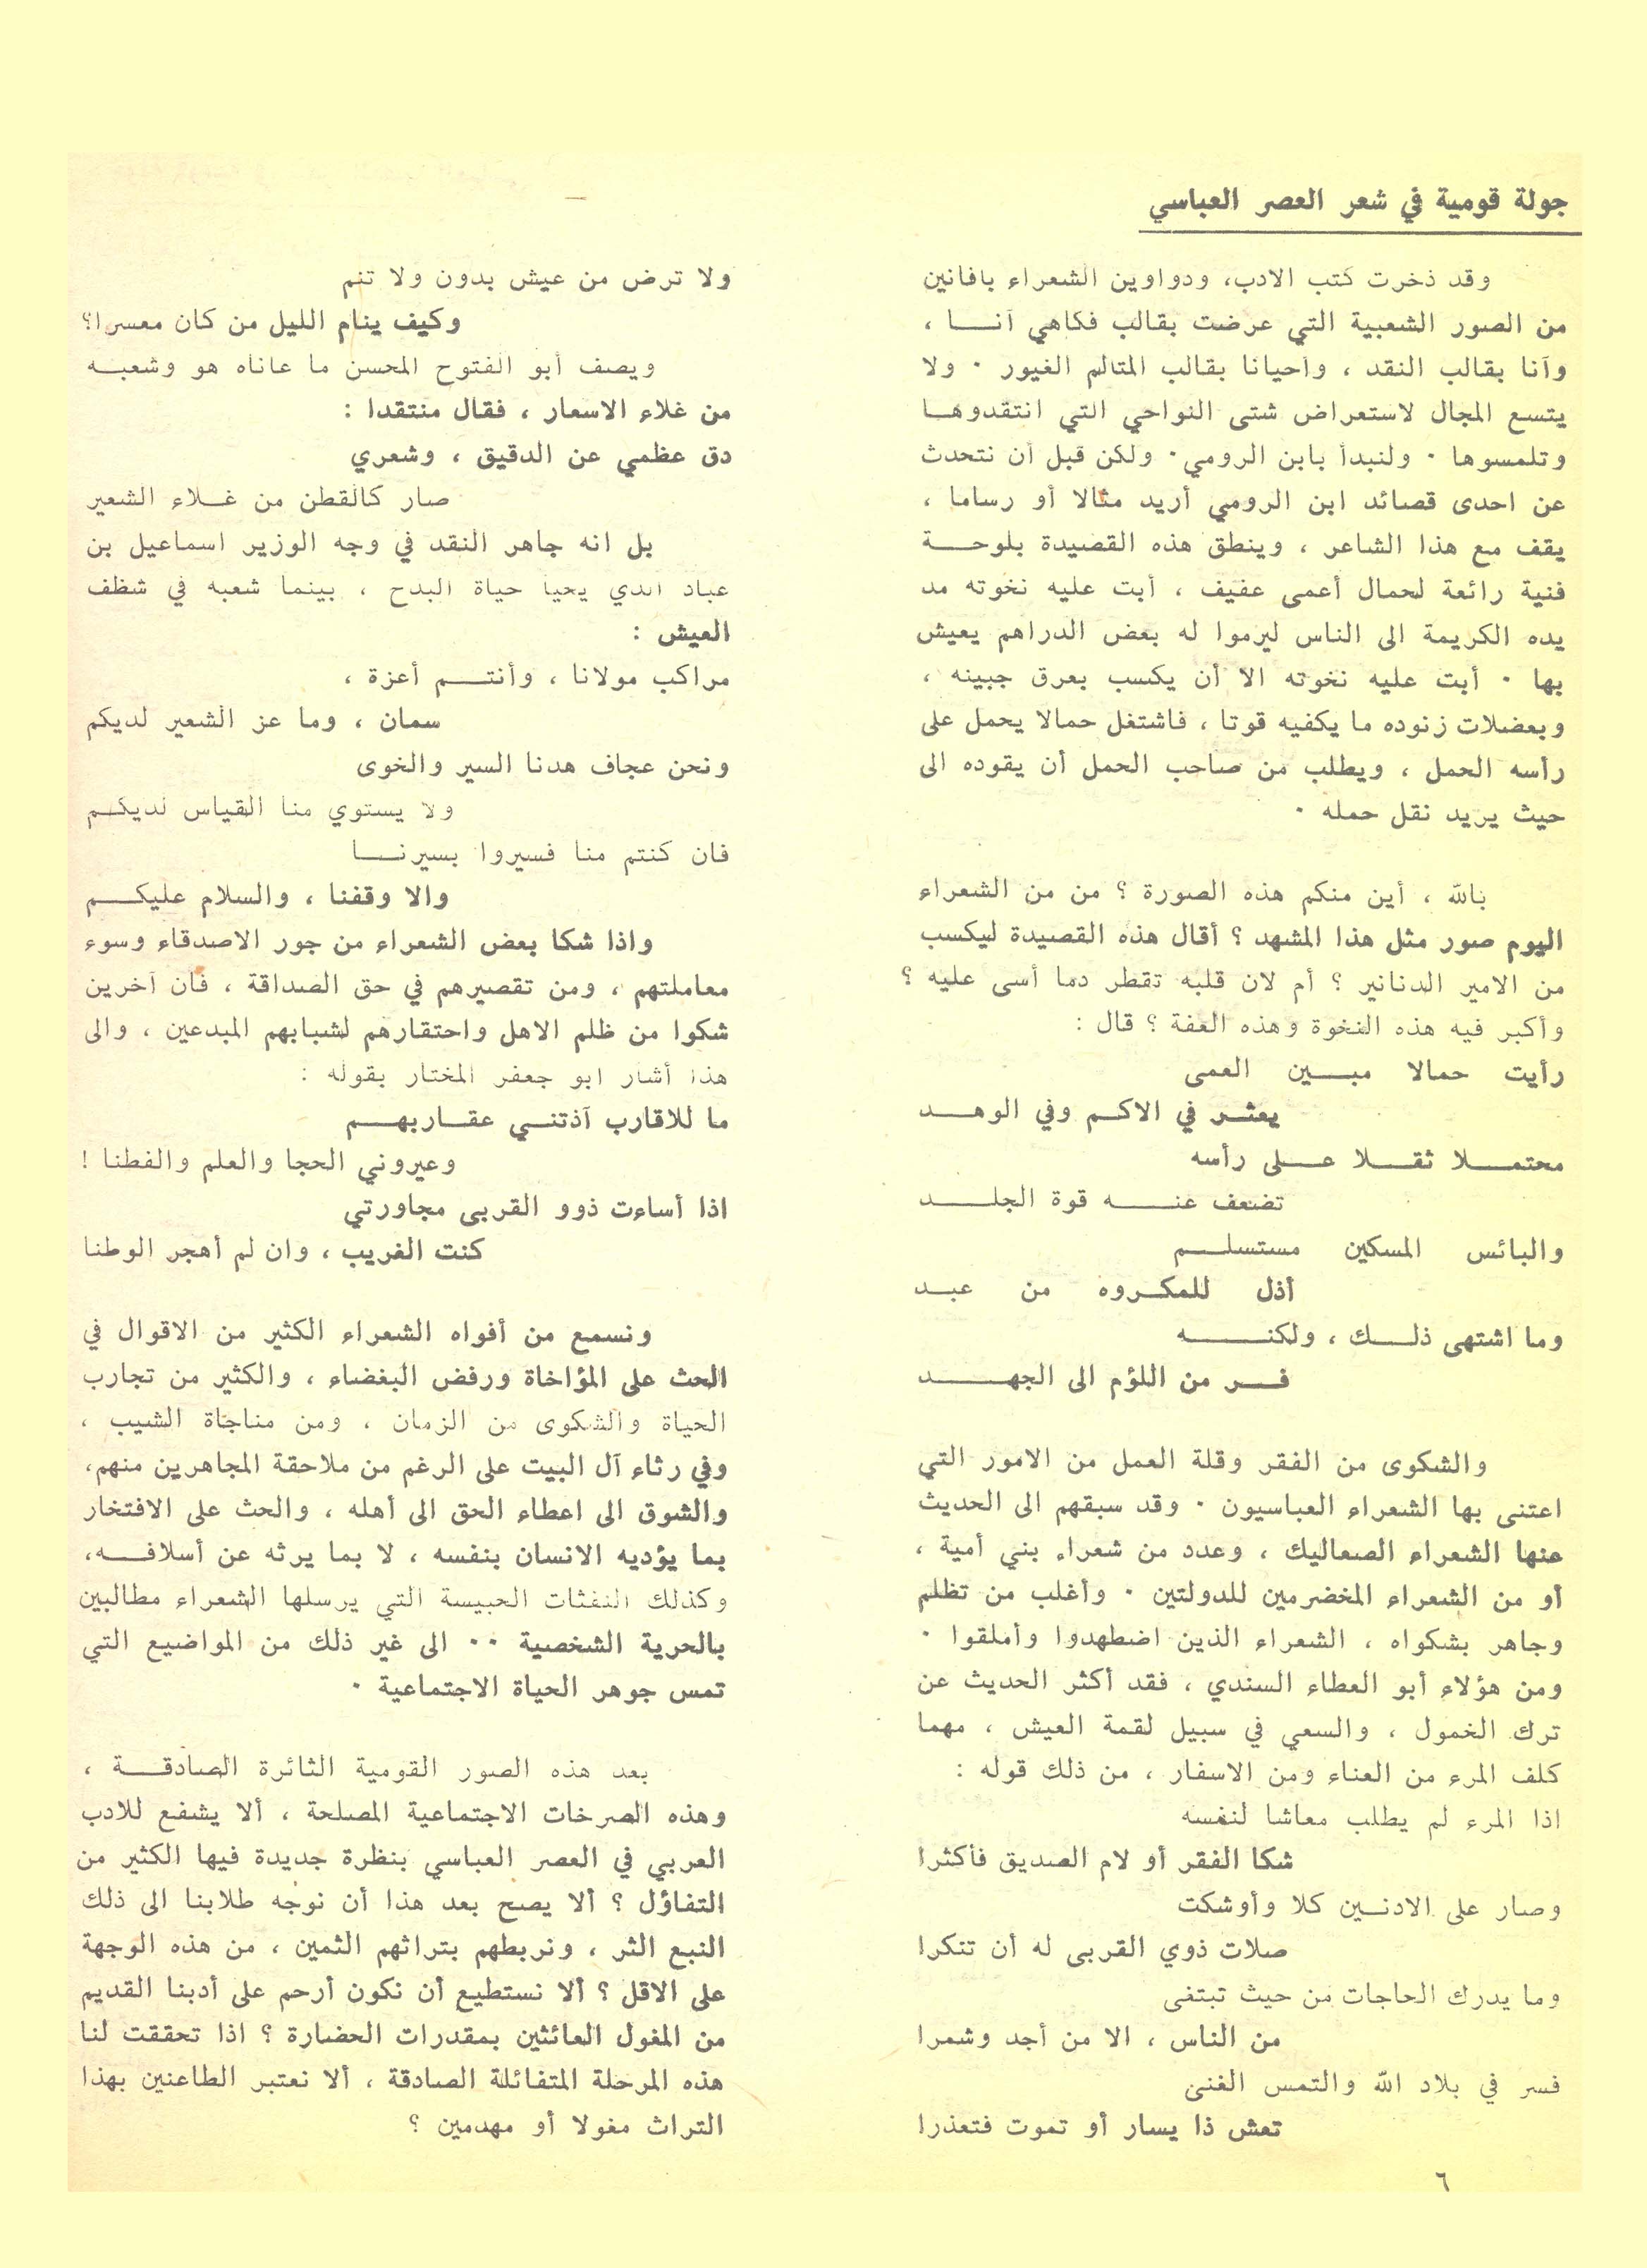 جولة قومية في شعر العصر العباسي
وقد ذخرت كتب الادب، ودواوين الشعراء بافانين
من الصور الشعبية التي عرضت بقالب فكاهي آنا ،
وآنا بقالب النقد ، وأحيانا بقالب المتالم الغيور ٠ ولا
يتسع المجال لاستعراض شتى النواحي التي انتقدوها
وتلمسوها ٠ ولنبدأ بابن الرومي٠ ولكن قبل أن نتحدث
عن احدى قصائد ابن الرومي أريد مثالا أو رساما ،
يقف مع هذا الشاعر ، وينطق هذه القصيدة بلوحة
فنية رائعة لحمال أعمى عفيف ، أبت عليه نخوته مد
يده الكريمة الى الناس ليرموا له بعض الدراهم يعيش
بها ٠ أبت عليه نخوته الا أن يكسب بعرق جبينه ،
وبعضلات زنوده ما يكفيه قوتا ، فاشتغل حمالا يحمل على
رأسه الحمل ، ويطلب من صاحب الحمل أن يقوده الى
حيث يريد نقل حمله ٠
بالله ، أين منكم هذه الصورة ؟ من من الشعراء
اليوم صور مثل هذا المشهد ؟ أقال هذه القصيدة ليكسب
من الامير الدنانير ؟ أم لان قلبه تقطر دما أسى عليه ؟
وأكبر فيه هذه النخوة وهذه العفة ؟ قال :
رأيت حمالا مبين العمى
يعثر في الاكم وفي الوهد
محتملا ثقلا على رأسه
تضعف عنه قوة الجلد
والبائس المسكين مستسلم
أذل للمكروه من عبد
وما اشتهى ذلك ، ولكنه
فر من اللؤم الى الجهد
والشكوى من الفقر وقلة العمل من الامور التي
اعتنى بها الشعراء العباسيون ٠ وقد سبقهم الى الحديث
عنها الشعراء الصعاليك ، وعدد من شعراء بني أمية ،
أو من الشعراء المخضرمين للدولتين ٠ وأغلب من تظلم
وجاهر بشكواه ، الشعراء الذين اضطهدوا وأملقوا ٠
ومن هؤلاء أبو العطاء السندي ، فقد أكثر الحديث عن
ترك الخمول ، والسعي في سبيل لقمة العيش ، مهما
كلف المرء من العناء ومن الاسفار ، من ذلك قوله :
اذا المرء لم يطلب معاشا لنفسه
شكا الفقر أو لام الصديق فأكثرا
وصار على الادنين كلا وأوشكت
صلات ذوي القربى له أن تنكرا
وما يدرك الحاجات من حيث تبتغى
من الناس ، الا من أجد وشمرا
فسر في بلاد الله والتمس الغنى
تعش ذا يسار أو تموت فتعذرا
ولا ترض من عيش بدون ولا تنم
وكيف ينام الليل من كان معسرا؟
ويصف أبو الفتوح المحسن ما عاناه هو وشعبه
من غلاء الاسعار ، فقال منتقدا :
دق عظمي عن الدقيق ، وشعري
صار كالقطن من غلاء الشعير
بل انه جاهر النقد في وجه الوزير اسماعيل بن
عباد الذي يحيا حياة البدح ، بينما شعبه في شظف
العيش :
مراكب مولانا ، وأنتم أعزة ،
سمان ، وما عز الشعير لديكم
ونحن عجاف هدنا السير والخوى
ولا يستوي منا القياس لديكم
فان كنتم منا فسيروا بسيرنا
والا وقفنا ، والسلام عليكم
واذا شكا بعض الشعراء من جور الاصدقاء وسوء
معاملتهم ، ومن تقصيرهم في حق الصداقة ، فان آخرين
شكوا من ظلم الاهل واحتقارهم لشبابهم المبدعين ، والى
هذا أشار ابو جعفر المختار بقوله :
ما للاقارب آذتني عقاربهم
وعيروني الحجا والعلم والفطنا !
اذا أساءت ذوو القربى مجاورتي
كنت الغريب ، وان لم أهجر الوطنا
ونسمع من أفواه الشعراء الكثير من الاقوال في
الحث على المؤاخاة ورفض البغضاء ، والكثير من تجارب
الحياة والشكوى من الزمان ، ومن مناجاة الشيب ،
وفي رثاء آل البيت على الرغم من ملاحقة المجاهرين منهم،
والشوق الى اعطاء الحق الى أهله ، والحث على الافتخار
بما يؤديه الانسان بنفسه ، لا بما يرثه عن أسلافه،
وكذلك النفثات الحبيسة التي يرسلها الشعراء مطالبين
بالحرية الشخصية ٠٠ الى غير ذلك من المواضيع التي
تمس جوهر الحياة الاجتماعية ٠
بعد هذه الصور القومية الثائرة الصادقة ،
وهذه الصرخات الاجتماعية المصلحة ، ألا يشفع للادب
العربي في العصر العباسي بنظرة جديدة فيها الكثير من
التفاؤل ؟ ألا يصح بعد هذا أن نوجه طلابنا الى ذلك
النبع الثر ، ونربطهم بتراثهم الثمين ، من هذه الوجهة
على الاقل ؟ ألا نستطيع أن نكون أرحم على أدبنا القديم
من المغول العائثين بمقدرات الحضارة ؟ اذا تحققت لنا
هذه المرحلة المتفائلة الصادقة ، ألا نعتبر الطاعنين بهذا
التراث مغولا أو مهدمين ؟
٦